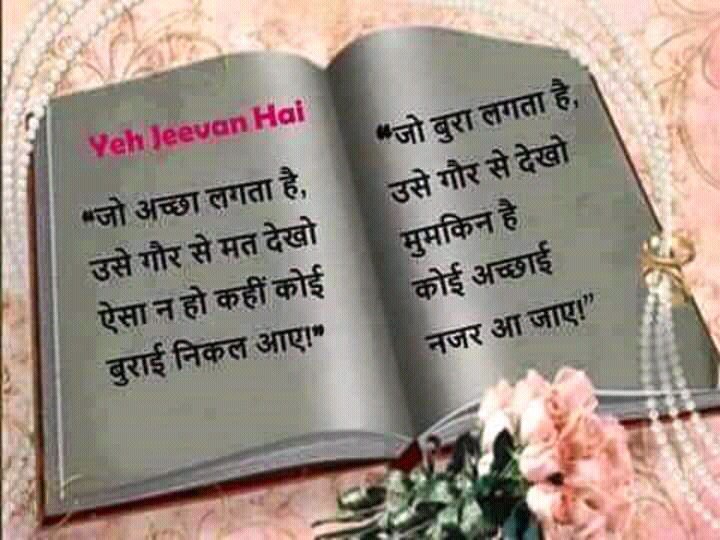 Yeh Jeevan Hai
"जो अच्छा लगता है,
उसे गौर से मत देखो
ऐसा न हो कहीं कोई
बुराई निकल आए!"
"जो बुरा लगता है,
उसे गौर से देखो
मुमकिन है
कोई अच्छाई
नजर आ जाए!"